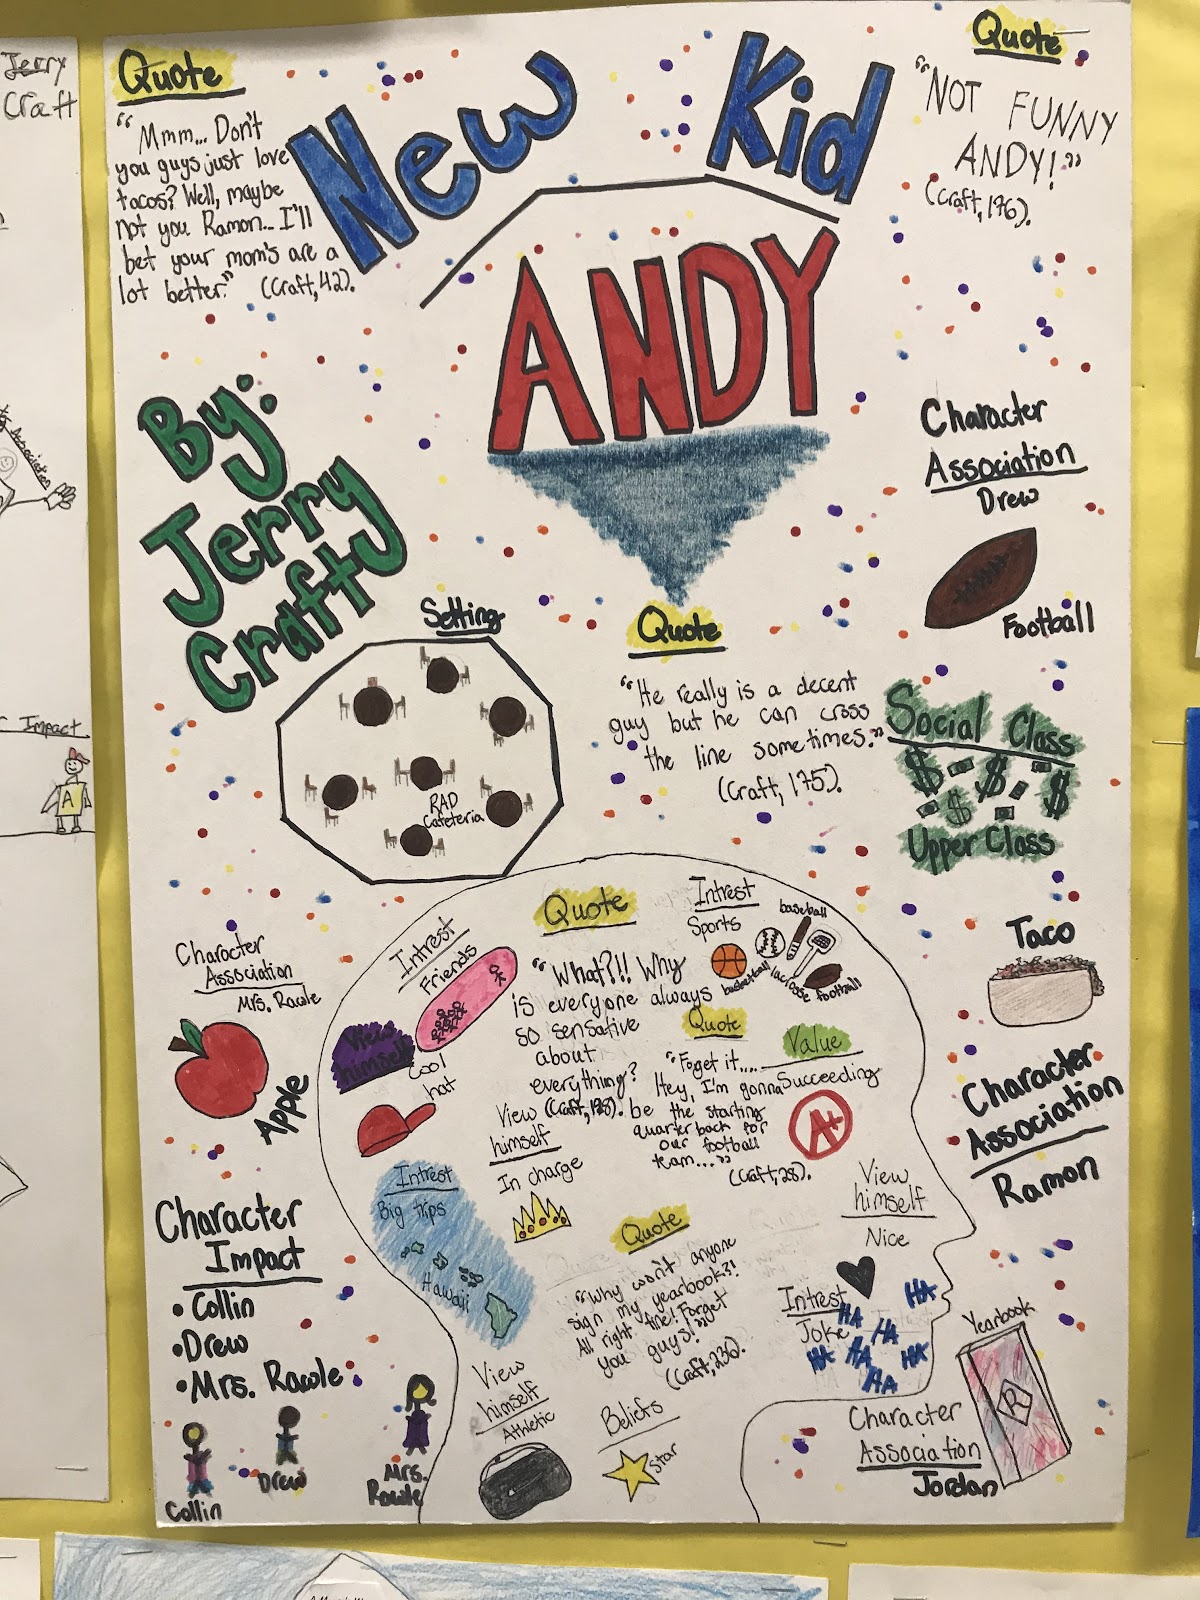 Jerry
Craft
Impact
A
Quote
"Mmm... Don't
you guys just love
tacos? Well, maybe
not you Ramon... I'll
bet your mom's are a
lot better." (Craft, 42).
New Kid
Quote
"NOT FUNNY
ANDY!"
(Craft, 176).
ANDY
By:
Jerry
Craft
Character
Association
Drew
Football
Setting
RAD
Cafeteria
Quote
"He really is a decent
guy but he can cross
the line sometimes."
(Craft, 175).
Social Class
$ $ $
$
Upper Class
Character
Association
Mrs. Rawle
Apple
Taco
Character
Association
Ramon
Intrest
Friends
Quote
"What?!! Why
is everyone always
so sensative
about
everything?
(Craft, 128).
Intrest
Sports
baseball
basketball
lacrosse
football
View
himself
Cool
hat
Quote
"Forget it....
Hey, I'm gonna
be the starting
quarterback for
our football
team..."
(Craft, 28).
Value
Succeeding
A+
View
himself
In charge
Intrest
Big trips
Hawaii
View
himself
Nice
Quote
"Why won't anyone
sign my yearbook?!
All right fine! Forget
you guys!"
Intrest
Joke
HA
HA
HA
HA
HA
HA
HA
Character
Impact
• Collin
• Drew
• Mrs. Rawle
Collin
Drew
Mrs.
Rawle
View
himself
Athletic
Beliefs
Star
Yearbook
R
Character
Association
Jordan